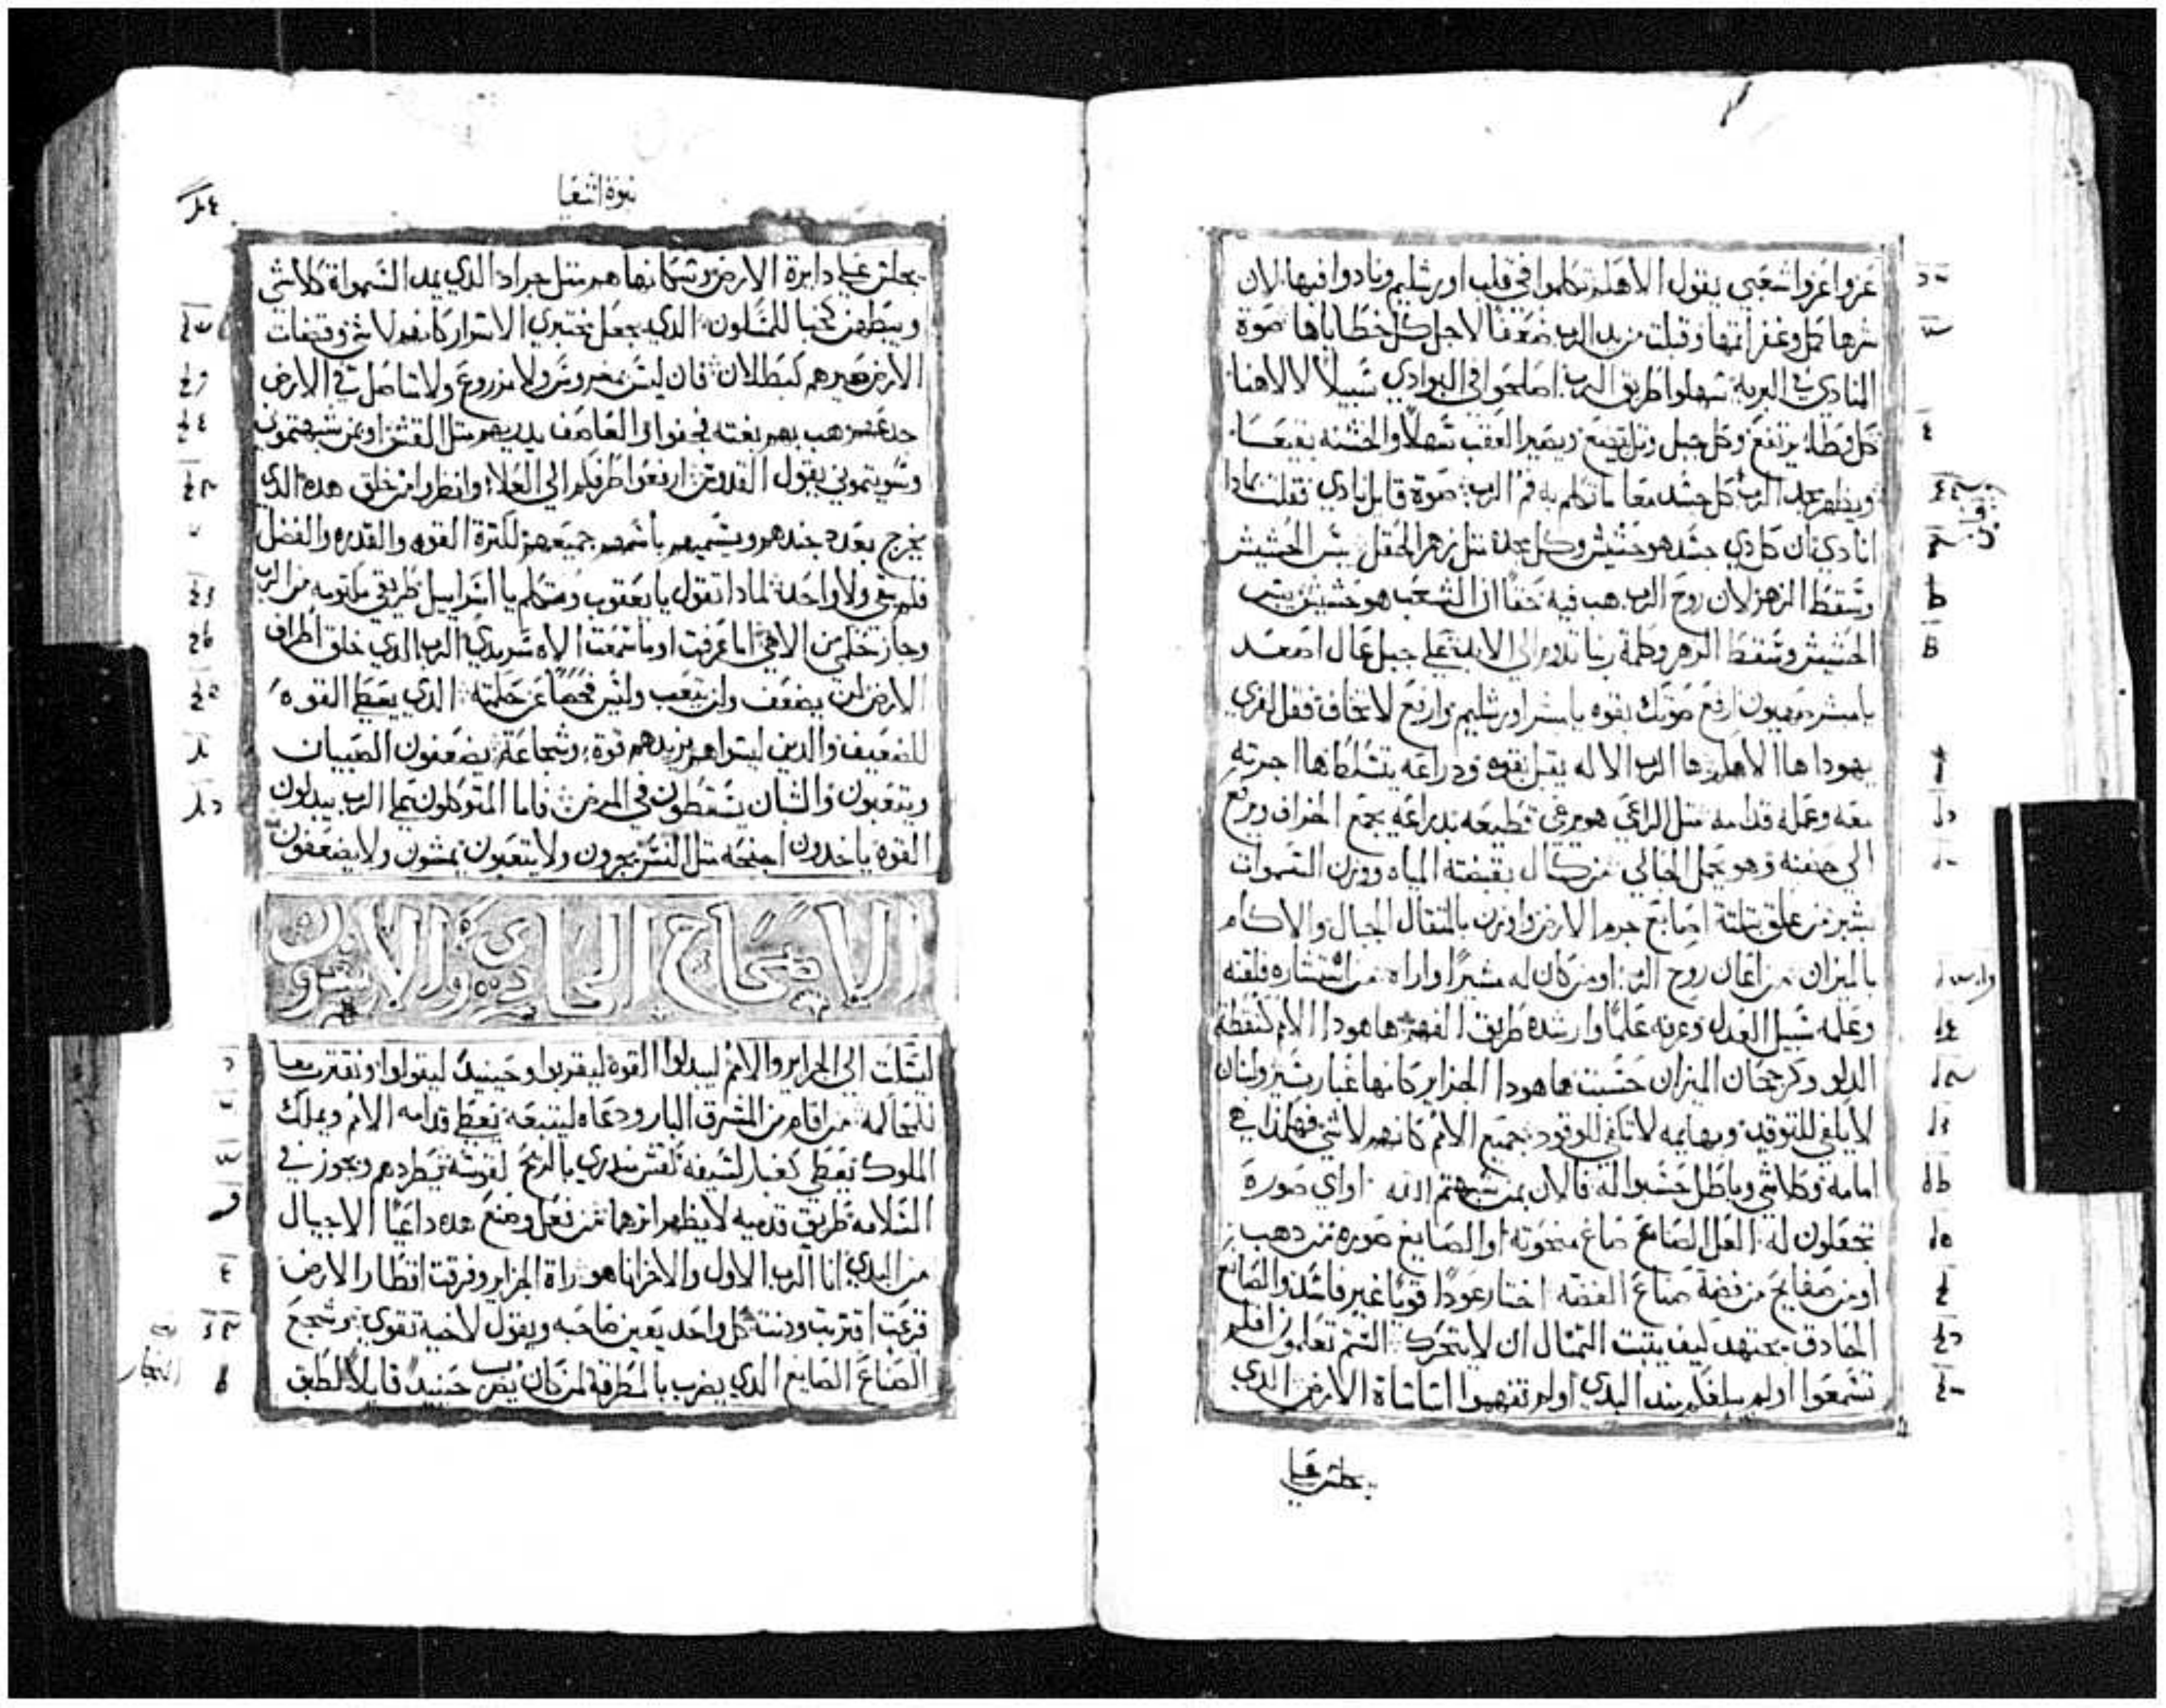 عزوا عزوا شعبي يقول الاهكم تكلموا في قلب اورشليم ونادوا فيها لان
شرها كمل وغفر اثمها وقبلت من يد الرب ضعفا لاجل كل خطاياها صوة
المنادي في البرية سهلوا طريق الرب اصلحوا في البوادي سبيلا لالاهنا
كل وطاه يرتفع وكل جبل وتل يتضع ويصير العقب سهلا والخشنه بقيعا
ويظهر مجد الرب كل جسد معا ما تكلم به فم الرب صوة قايل نادي فقلت بمادا
انادي ان كل دي جسد هو حشيش وكل مجده متل زهر الحقل يبس الحشيش
وسقط الزهر لان روح الرب هب فيه حقا ان الشعب هو حشيش يبس
الحشيش وسقط الزهر وكلمة ربنا تدوم الى الابد على جبل عال اصعد
يا مبشر صهيون ارفع صوتك بقوه يا مبشر اورشليم وارفع لا تخاف فقل لقري
يهودا ها الاهكم ها الرب الاله يقبل بقوه ودراعه يتسلط ها اجرته
معه وعمله قدامه متل الراعي هو يرعى قطيعه بدراعه يجمع الخراف ويرفع
الى حضنه وهو يحمل الحبالي من كال بقبضته المياه ووزن السموات
بشبر من علق بتلتة اصابع جرم الارض واوزن بالمثقال الجبال والاكام
بالميزان من اعان روح الرب او من كان له مشيرا واراه من استشاره فلقنه
وعلمه سبيل العدل وعرفه علما وارشده طريق الفهم ها هودا الامم كنقطة
الدلو وكرجحان الميزان حسبت ها هودا الجزاير كانها غبار يسير ولبنان
لا يلفي للتوقيد وبهايمه لا تكفي للوقود جميع الامم كانهم لا شي فهكدا هي
امامه وكلاشي وباطل حسبوا له فالان بمن شبهتم الله او اي صورة
تجعلون له العل الصانع صاغ منحوته او الصايغ صوره من دهب
او من صفايح من فضة صناع الفضه اختار عودا قويا غير فاسد والصانع
الحادق يجتهد ليف يتبت التمثال ان لا يتحرك الستم تعلمون افلم
تسمعوا اولم يبلغكم مند البدي اولم تفهموا اساسات الارض الدي
يجلس على
نبوة اشعيا
يجلس على دايرة الارض وسكانها هم متل جراد الدي يمد السمواة كلاشي
ويبسطهن كخبا للمسكون الدي يجعل مختبري الاسرار كانهم لا شي وقضات
الارض صيرهم كبطلان فان ليس مغروس ولا مزروع ولا متاصل في الارض
جدعهم هب بهم بغته فجفوا والعاصف يدريهم متل القش او بمن شبهتموني
وسويتموني يقول القدوس ارفعوا طرفكم الى العلاء وانظروا من خلق هده الدي
يخرج بعدد جندهم ويسميهم باسمهم جميعهم لكترة القوه والقدره والفضل
فلم يبقى ولا واحدة لمادا تقول يا يعقوب وتتكلم يا اسراييل طريقي مكتومه من الرب
وجاز حكمي من الاهي اما عرفت او ما سمعت الاه سرمدي الرب الدي خلق اطراف
الارض لن يضعف ولن يتعب وليس فحصا عن حكمته الدي يعطي القوه
للضعيف والدين ليسوا هم يزيدهم قوة وشجاعة يضعفون الصبيان
ويتعبون والشبان يسقطون في المرض فاما المتوكلون على الرب يبدلون
القوة ياخدون اجنحه متل النسر يجرون ولا يتعبون يمشون ولا يضعفون
الاصحاح الحادي والاربعون
لتسكت الى الجزاير والامم ليبدلوا القوة ليقربوا وحينيد ليقولوا ونقترب معا
للمحاكمه من اقام من المشرق البار ودعاه ليتبعه يعطي قدامه الامم ويملك
الملوك يعطي كغبار لسيفه كقش مندري بالريح لقوسه يطردهم ويجوز في
السلامه طريق قدميه لا يظهر اترهما من فعل وصنع هده داعيا الاجيال
من البدي انا الرب الاول والاخر انا هو راة الجزاير وفرقت اقطار الارض
فزعت اقتربت ودنت كل واحد يعين صاحبه ويقول لاخيه تقوى وشجع
الصناع الصايع الدي يضرب بالمطرقة لمن كان يضرب حينيد قايلا للطبق
النحاس